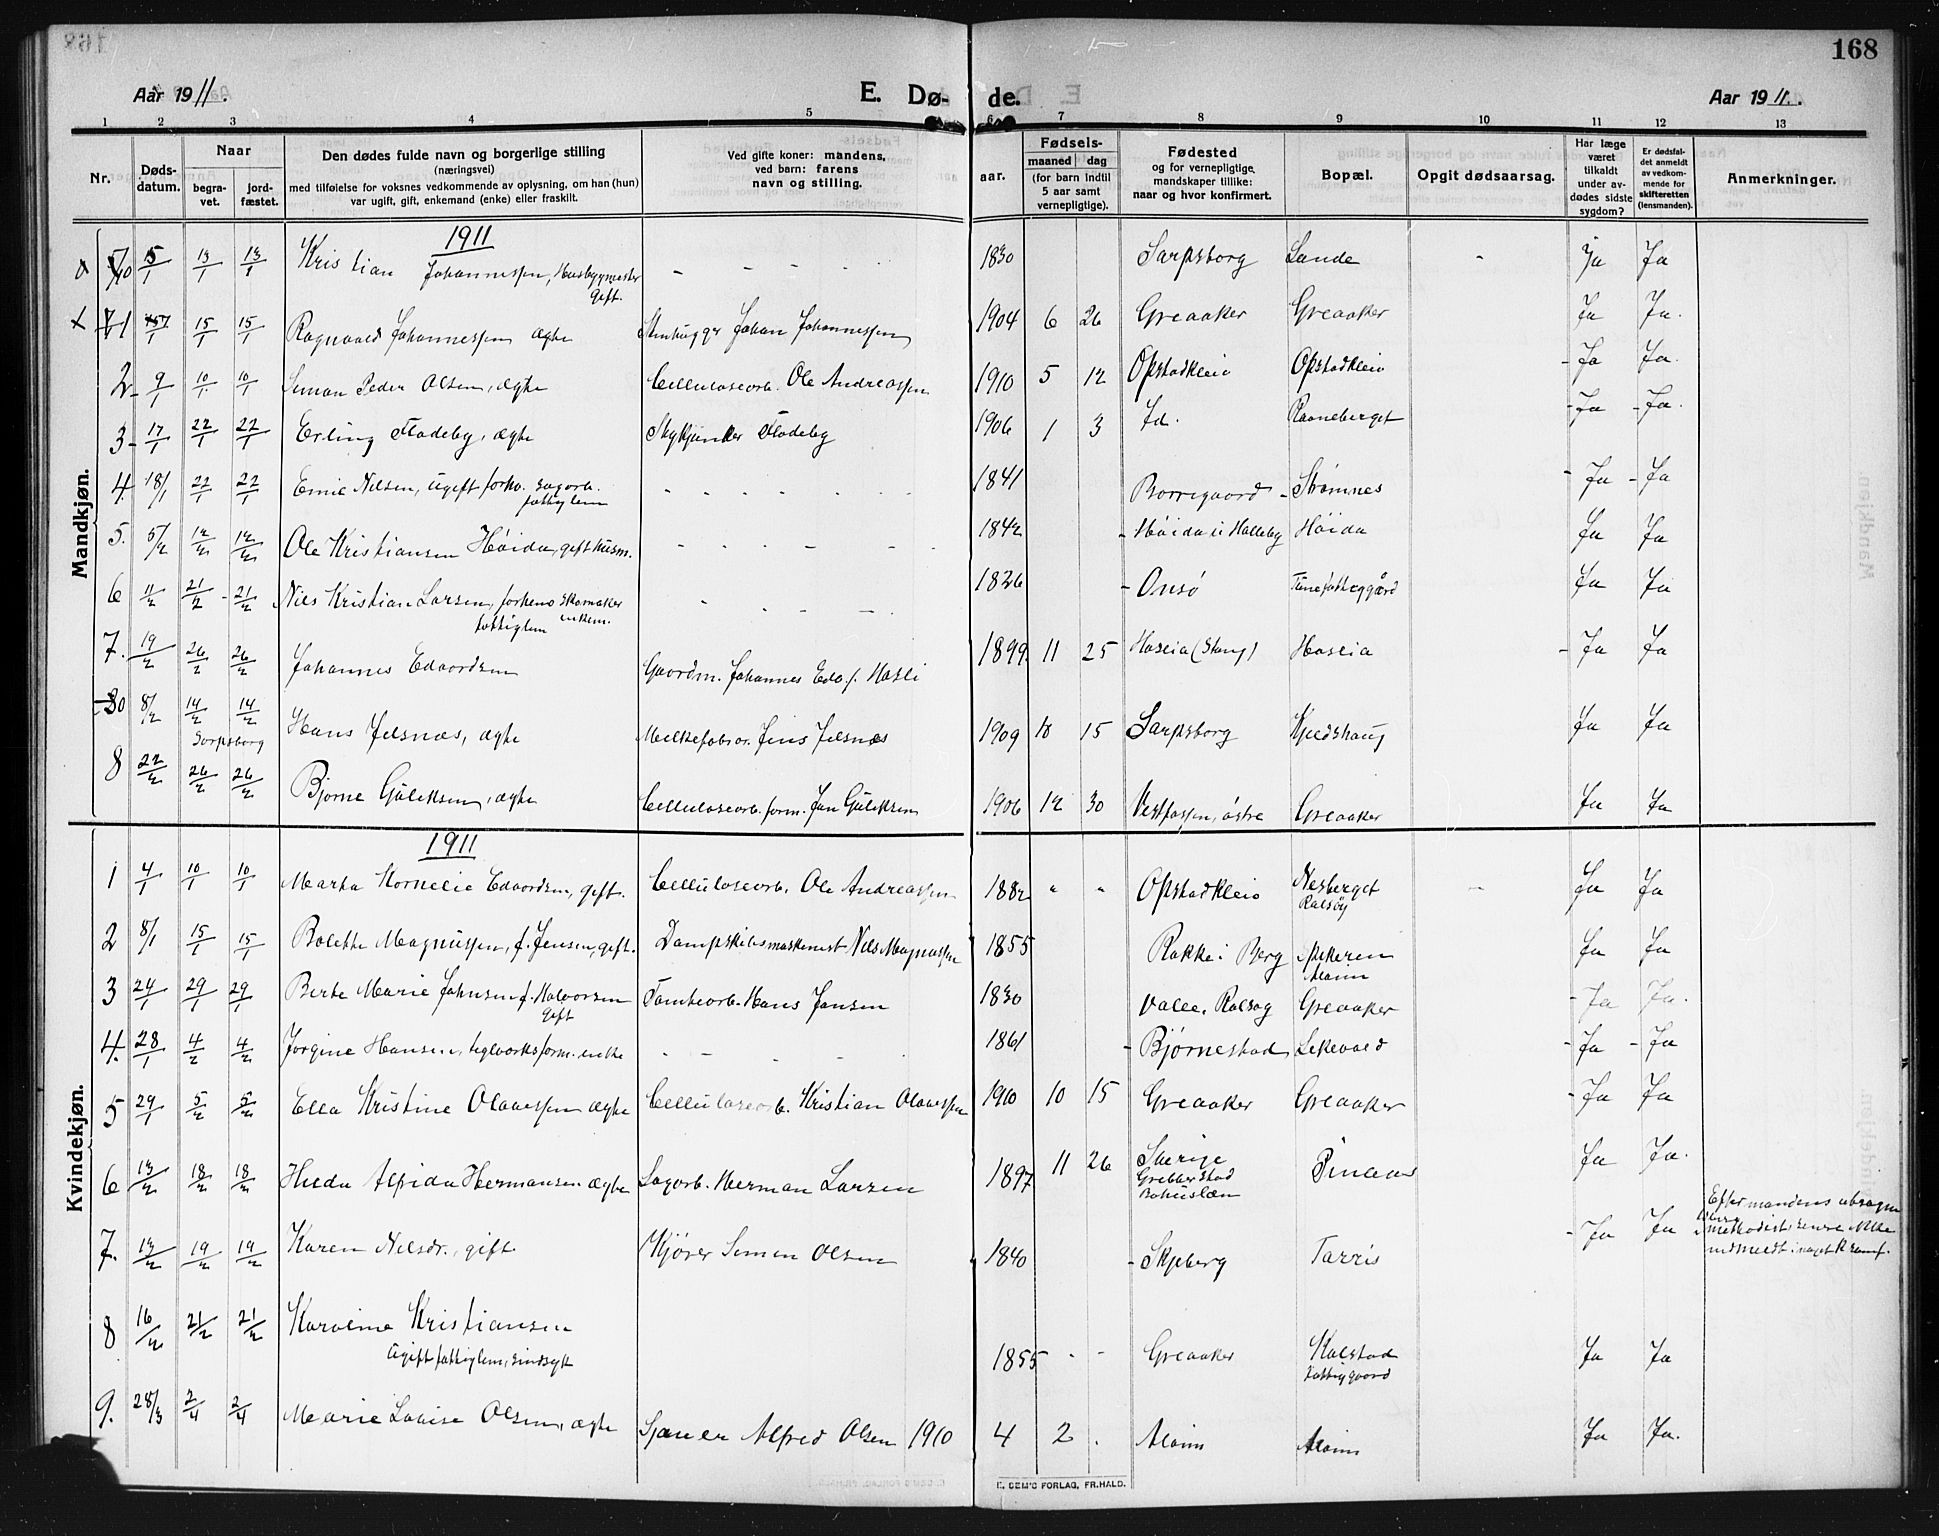 168
Aar 1911.
E. Dø-
de.
Aar 1911.
1 2 3 4 5 6 7 8 9 10 11 12 13
Nr.
Døds-
datum.
Naar
begra-
vet.
jord-
fæstet.
Den dødes fulde navn og borgerlige stilling
(næringsvei)
med tilføielse for voksnes vedkommende av oplysning, om han (hun)
var ugift, gift, enkemand (enke) eller fraskilt.
Ved gifte koner: mandens,
ved barn: farens
navn og stilling.
aar.
Fødsels-
maaned dag
(for barn indtil
5 aar samt
vernepligtige).
Fødested
og for vernepligtige
mandskaper tillike:
naar og hvor konfirmert.
Bopæl.
Opgit dødsaarsag.
Har læge
været
tilkaldt
under av-
dødes sidste
sygdom?
Er dødsfal-
det anmeldt
av vedkom-
mende for
skifteretten
(lensmanden).
Anmerkninger.
Mandkjøn.
1911
5/1 13/1 13/1 Kristian Johannessen, Husbygmester 1830 Sarpsborg Lande Ja Ja
Gift.
15/1 15/1 Ragnvald Johannessen ægte Stenhugger Johan Johannessen 1904 6 26 Greaaker Greaaker Ja Ja.
2 9/1 10/1 10/1 Simon Peder Olsen, ægte Cellulosearb. Ole Andreassen 1910 5 12 Opstadkleiv Opstadkleiv Ja Ja.
3 17/1 22/1 22/1 Erling Flodeby, ægte Flodeby 1906 1 3 Id. Raaneberget Ja Ja.
4. 18/1 22/1 22/1 Emil Nilsen, ugift forhv. sagarb. 1841 Borregaard Strømnes Ja Ja
fattiglem
5. 5/2 12/2 12/2 Ole Kristiansen Höida, gift husm. 1842 Höida i Halleby Höida Ja Ja
6 11/2 21/2 21/2 Nils Kristian Larsen, forhenv skomaker 1826 Onsö Tune fattiggård Ja Ja
fattiglem enkem.
7. 19/2 26/2 26/2 Johannes Edvardsen Gaardm. Johannes Edv. f. Hasli 1899 11 25 Haslia (Stang) Haslia Ja Ja
8/2 14/2 14/2 Hans Jelsnæs, ægte Melkefabr. Jens Jelsnæs 1909 10 15 Sarpsborg Kjedshaug Ja Ja
Sarpsborg
8 22/2 26/2 26/2 Bjarne Guliksen, ægte Cellulosearb. form. Jan Guliksen 1906 12 30 Vestfossen, östre Greaaker Ja Ja
Kvindekjøn.
1911
1 4/1 10/1 10/1 Marta Kornelie Edvardsen, gift. Celluloseorb. Ole Andreassen 1882 " " Opstadkleiv Nesberget Ja Ja
Rolsøy
2 8/1 15/1 15/1 Bolette Magnussen, f. Jensen, gift. Dampskibsmaskinist Nils Magnussen 1855 Rokke i Berg Ja Ja
3 24/1 29/1 29/1 Berte Marie Johnsen f. Halvorsen Tomtearb. Hans Jansen 1830 Valle, Rolsøy Greaaker Ja Ja.
Gift
4. 28/1 4/2 4/2 Jørgine Hansen, teglverksform. enke 1861 Bjørnestad Lekevold Ja Ja
5 29/1 5/2 5/2 Ella Kristine Olavessen ægte Celluloseorb. Kristian Olavessen 1910 10 15 Greaaker Greaaker Ja Ja
6 13/2 18/2 18/2 Hilda Alfida Hermansen ægte Sagarb. Herman Larsen 1897 11 26 Sverige Ja Ja.
Grebbestad
Bohuslæn
7. 13/2 19/2 19/2 Karen Nilsdr., gift Kjører Simen Olsen 1840 Skjeberg Tarris Ja Ja
Efter mandens utsagn
methodist, senere ikke
indmeldt i noget K samf.
8 16/2 21/2 21/2 Karoline Kristiansen 1855 Greaaker Kalstad Ja Ja
Ugift fattiglem, sindsyk fattiggaard
9. 28/3 2/4 2/4 Marie Lovise Olsen, ægte Sjauer Alfred Olsen 1910 4 2 Alvim Alvim Ja Ja.
E. SEM'S FORLAG, FR.HALD.